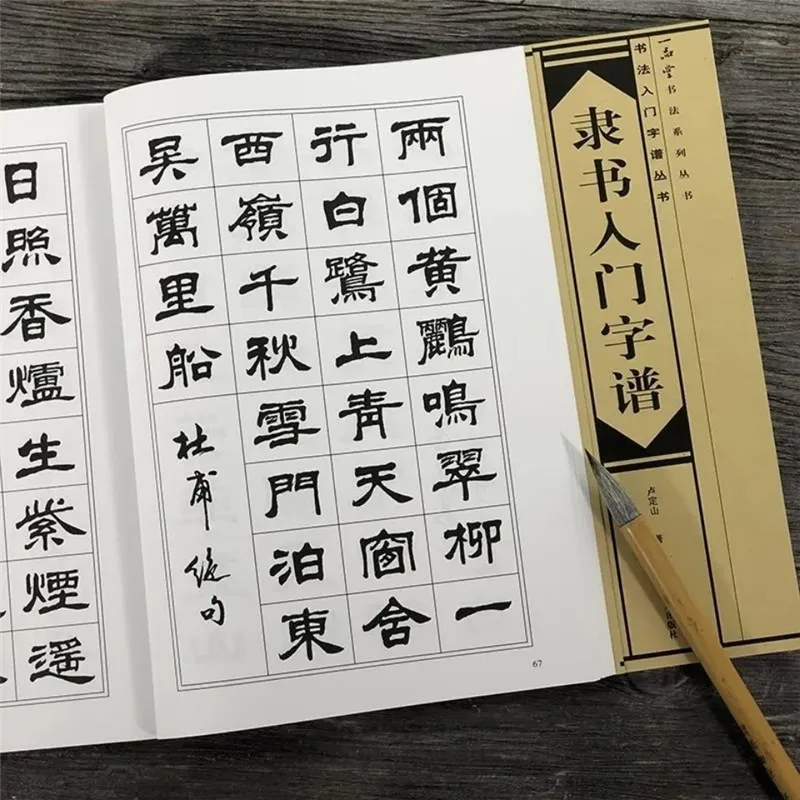 一
书法系列丛书
书法入门字谱丛书
隶书入门字谱
卢定山
出版社
兩個黄鸝鳴翠柳一
行白鷺上青天窗含
西嶺千秋雪門泊東
吴萬里船
杜甫 绝句
67
日照香爐生紫煙遥